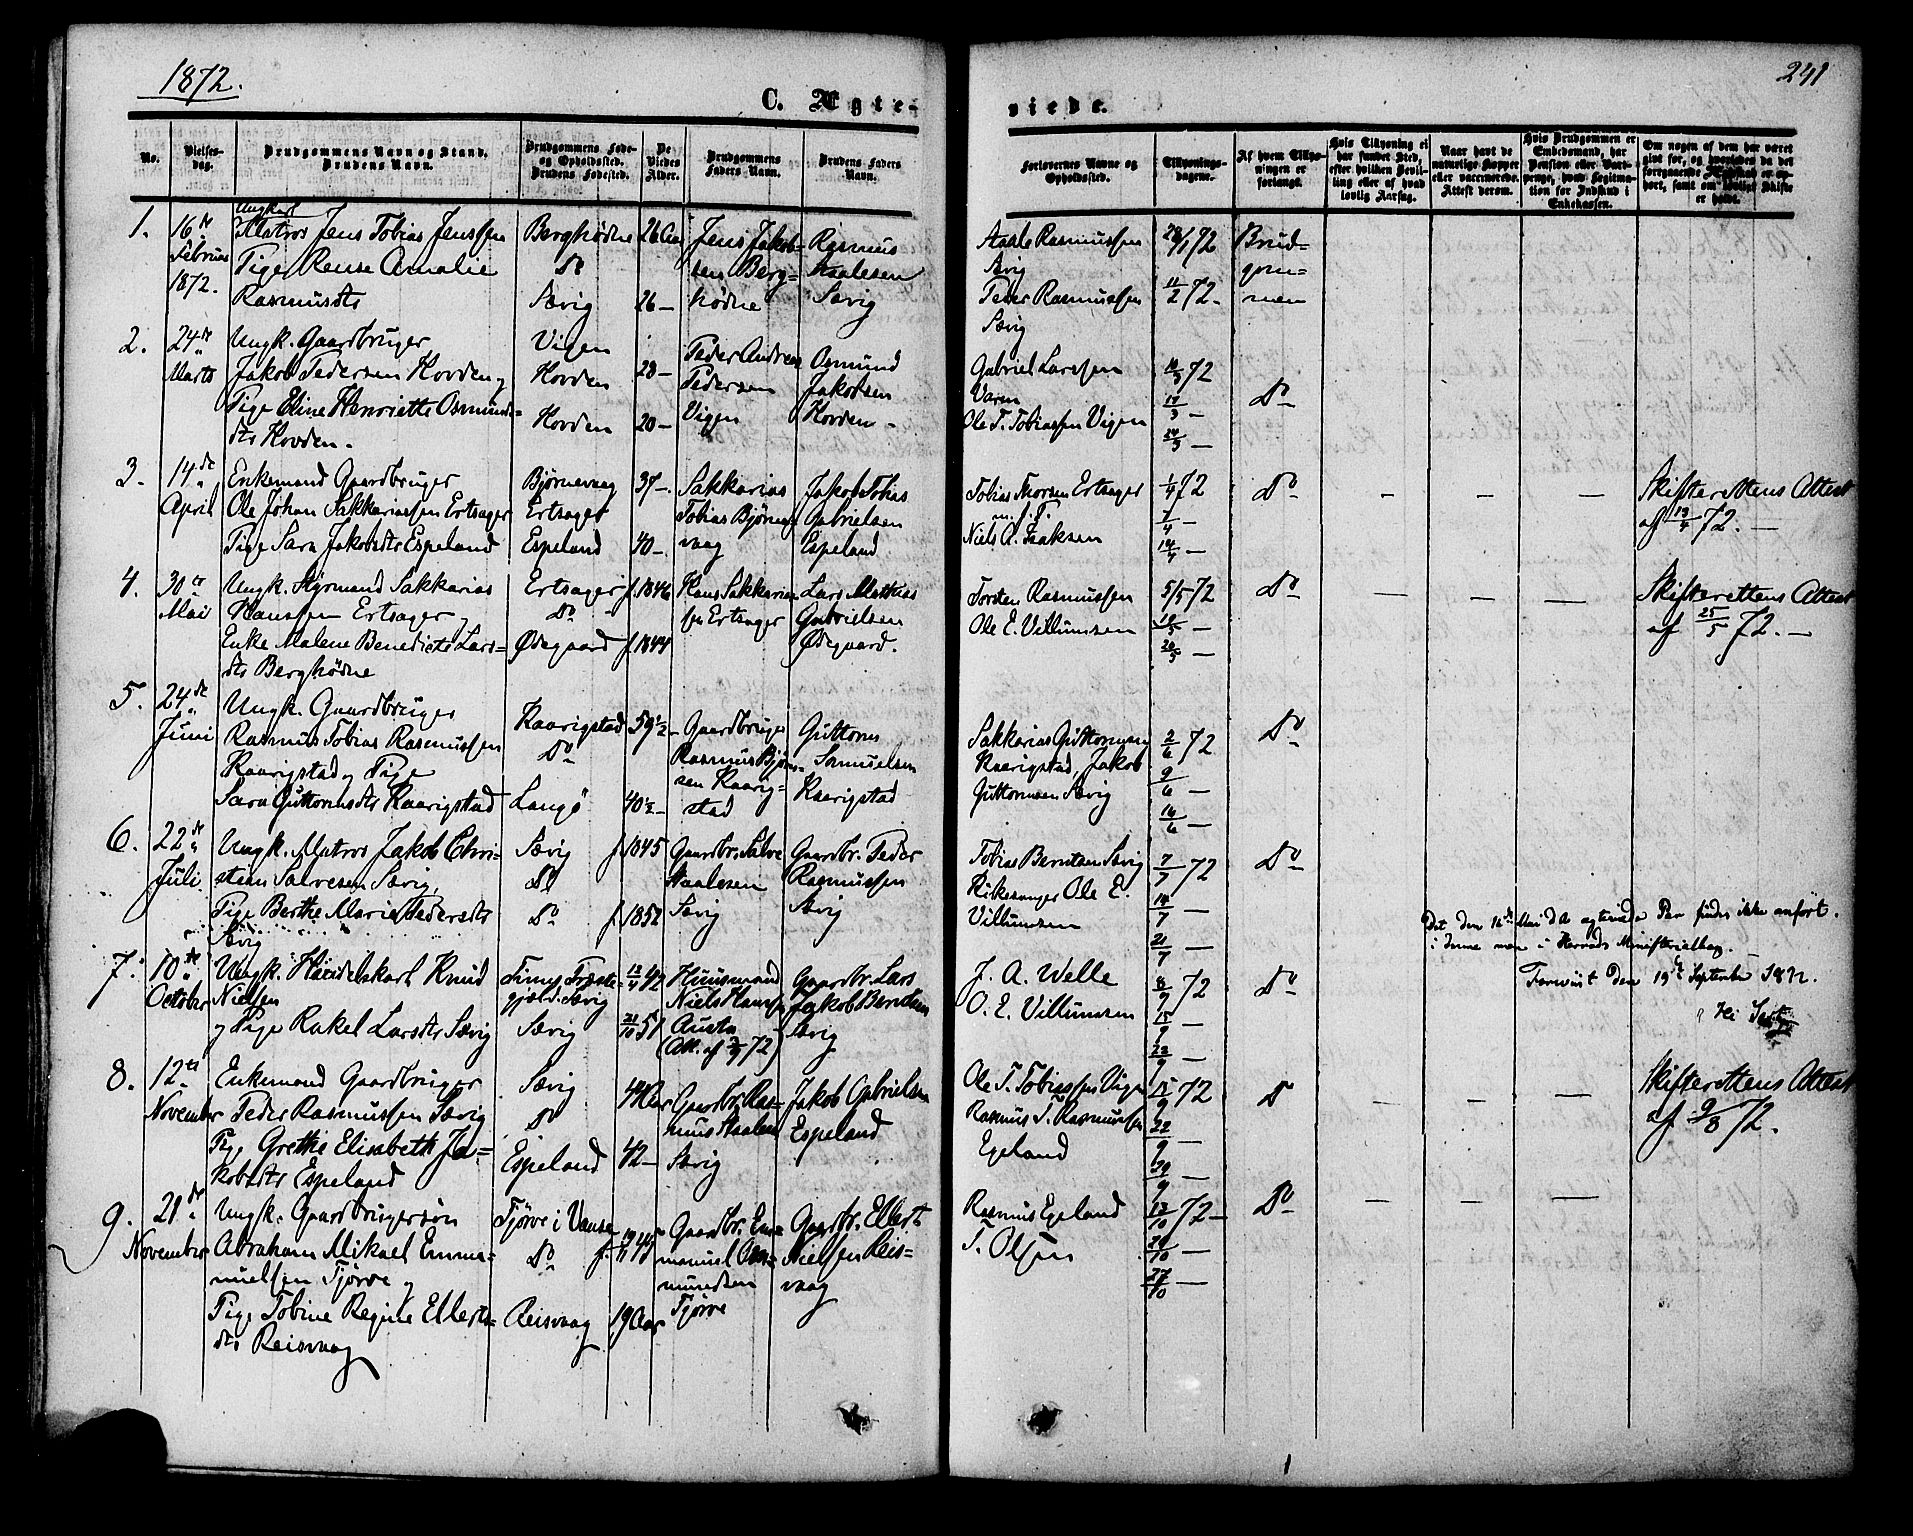 1872.
241
C. Ægte-
viede.
No.
Vielses-
dag.
Brudgommens Navn og Stand.
Brudens Navn.
Brudgommens Føde-
og Opholdssted.
Brudens Fødested.
De
Viedes
Alder.
Brudgommens
Faders Navn.
Brudens Faders
Navn.
Forlovernes Navne og
Opholdssted.
Tillysnings-
dagene.
Af hvem Tillys-
ningen er
forlangt.
Hvis Tillysning ei
har fundet Sted,
efter hvilken Bevil-
ling eller af hvad
lovlig Aarsag.
Naar havt de
naturlige Kopper
eller vaccinerede.
Attest derom.
Hvis Brudgommen er
Embedsmand, har
Pension eller Vart-
penge, hvad Legitima-
tion for Indskud i
Enkekassen.
Om nogen af dem har været
gift før, og hvorledes da det
foregaaende Ægteskab er op-
hørt, samt om lovligt Skifte
er holdt.
1.
16de
Februar
1872.
Ungkarl
Matros Jens Tobias Jenssen
Pige Rense Amalie
Rasmusdtr
Berghødne
Do
Sævig
26 Aar
26 —
Jens Jakob-
sen Berg-
hødne
Rasmus
Staalesen
Sævig
Aale Rasmussen
Sævig
Peder Rasmussen
Sævig
28/1 72
11/2 72.
Brud-
gom-
men
2.
24de
Marts
Ungk. Gaardbruger
Jakob Pedersen Hovden og
Pige Eline Henriette Osmunds-
dtr Hovden.
Vigen
Hovden
Hovden
28 —
20 —
Peder Andreas
Pedersen
Vigen
Osmund
Jakobsen
Hovden.
Gabriel Larssen
Varen
Ole T. Tobiassen Vigen
10/3 72
17/3 —
24/3 —
Do
3.
14de
April
Enkemand Gaardbruger
Ole Johan Sakkariassen Ertsager
Pige Sara Jakobsdtr Espeland
Bjørnevaag
Ertsager
Espeland
37 —.
40 —.
Sakkarias
Tobias Bjørne-
vaag
Jakob Tobias
Gabrielsen
Espeland
Tobias Thorsen Ertsager
Niels A. Isaksen
1/4 72
7/4 —
14/4 —
Do
—
—
—
Skifterettens Attest
af 13/4 72. —
4.
30te
Mai
Ungk. Styrmand Sakkarias
Hanssen Ertsager og
Enke Malene Benedicte Lars-
dtr Berghødne
Ertsager
Do
Ødegaard
f. 1846
f. 1844
Hans Sakkarias-
sen Ertsager
Lars Mathias
Gabrielsen
Ødegaard.
Torsten Rasmussen
Ole E. Villumsen
5/5 72
12/5 —
20/5 —
Do
—
—
—
Skifterettens Attest
af 25/5 72. —
5.
24de
Juni
Ungk. Gaardbruger
Rasmus Tobias Rasmussen
Kaarigstad og Pige
Sara Guttormsdtr Kaarigstad
Kaarigstad
Do
Langø
59½ —
40½ —
Gaardbruger
Rasmus Bjørn-
sen Kaarig-
stad
Guttorm
Samuelsen
Kaarigstad
Sakkarias Guttormsen
Kaarigstad, Jakob
Guttormsen Sævig
2/6 72
9/6 —
16/6 —
Do
6.
22de
Juli
Ungk. Matros Jakob Chri-
stian Salvesen Sævig,
Pige Berthe Marie Pedersdtr
Sævig
Sævig
Do
Do
f. 1845
f. 1852
Gaardbr. Salve
Staalesen
Sævig
Gaardbr. Peder
Rasmussen
Sævig
Tobias Berntsen Sævig
Kirkesanger Ole E.
Villumsen
7/7 72
14/7 —
21/7 —
Do
Det den 16de Mai 72 ægteviede Par findes ikke anført
i denne men i Herrads Ministerialbog. —
Forevist den 19de September 1872.
7.
10de
October
Ungk. Handelskarl Knud
Nielsen
og Pige Rakel Larsdtr Sævig
Sævig
Sævig
13/4 42
21/10 51
Huusmand
Niels Hansen
Austa
(Att. af 3/9 72)
Gaardbr. Lars
Jakob Berntsen
Sævig
J. A. Welle
O. E. Villumsen
8/9 72
15/9 —
22/9 —
Do
8.
12te
November
Enkemand Gaardbruger
Peder Rasmussen Sævig
Pige Grethe Elisabeth Ja-
kobsdtr Espeland
Sævig
Do
Espeland
44 Aar
42 —
Gaardbr. Ras-
mus Staalesen
Sævig
Jakob Gabrielsen
Espeland
Ole T. Tobiassen Vigen
Rasmus T. Rasmussen
Egeland
15/9 72
22/9 —
29/9 —
Do
—
—
—
Skifterettens Attest
af 9/8 72.
9.
28de
November
Ungk. Gaardbrugersøn
Abraham Mikael Emma-
nuelsen Tjørve og
Pige Tobine Regine Ellerts-
dtr Reisvaag
Tjørve i Vanse
Do
Reisvaag
19 Aar
Gaardbr. Em-
manuel Os-
mundsen
Tjørve
Gaardbr. Ellert
Nielsen Reis-
vaag
Rasmus Egeland
T. Olsen
13/10 72 —
20/10 —
27/10 —
Do
—
—
—